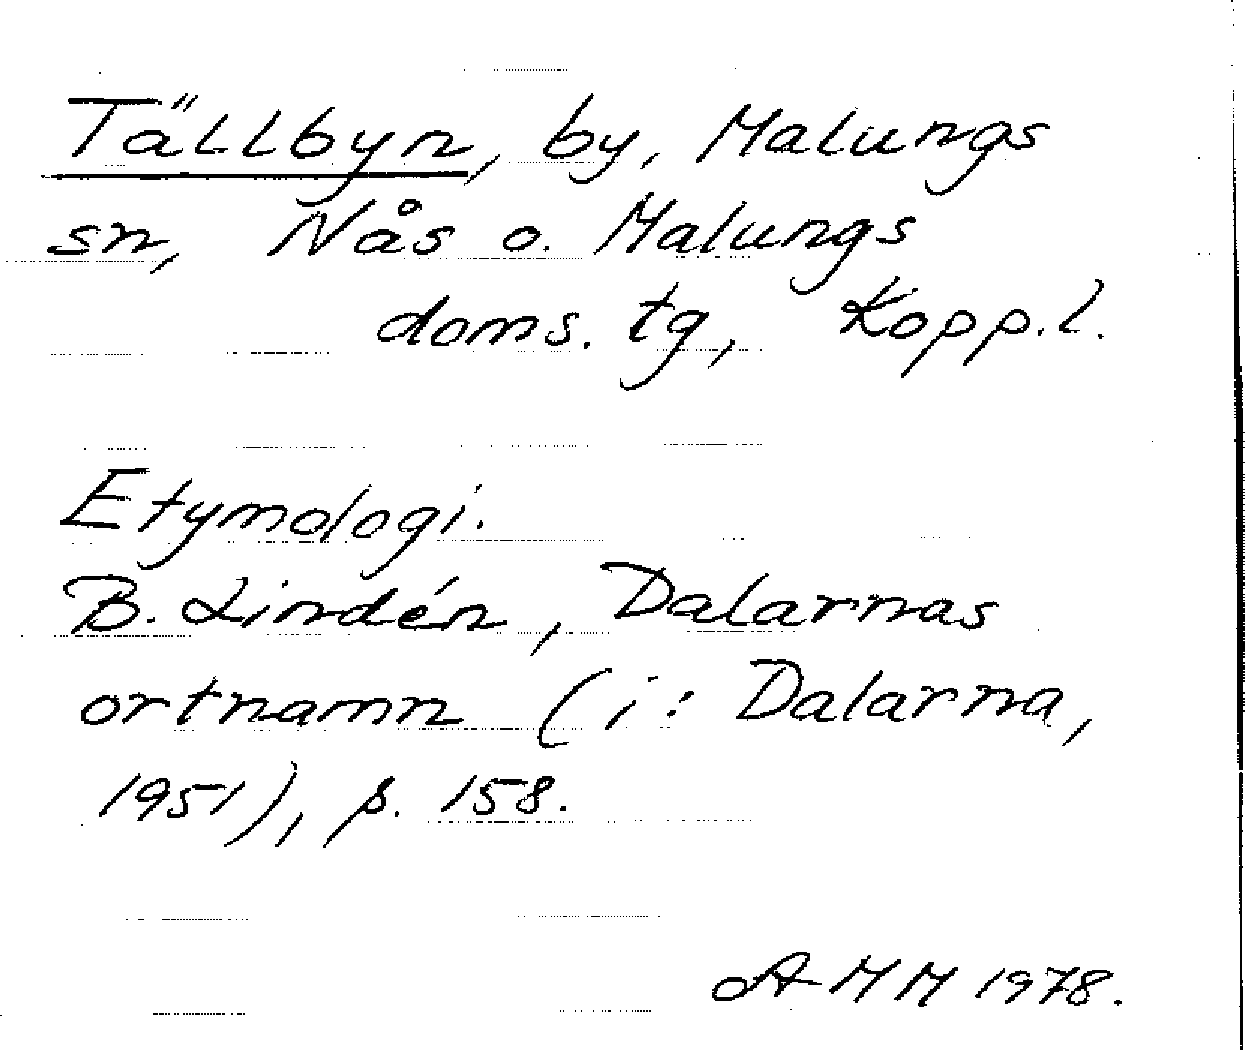 Tällbyn, by, Malungs
sn, Nås o. Malungs
doms. tg, Kopp.l.
Etymologi.
B. Lindén, Dalarnas
ortnamn (i: Dalarna,
1951), p. 158.
AMM 1978.